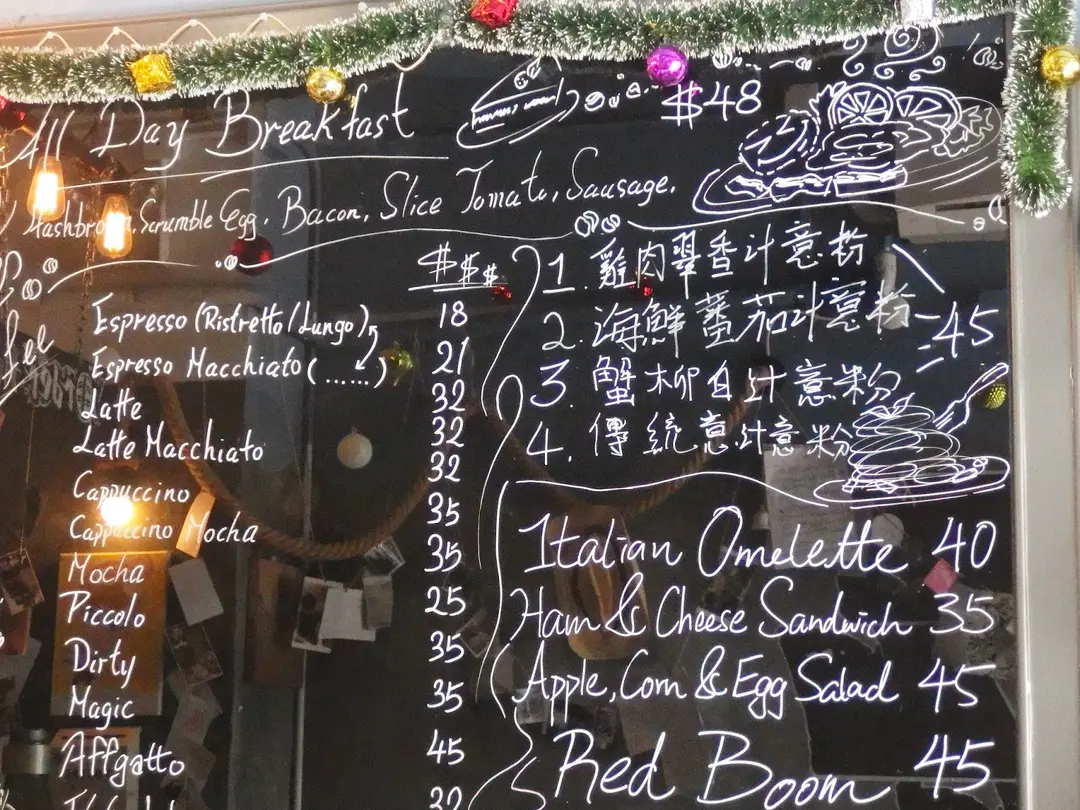 All Day Breakfast $48
Hashbrown, Scrumble Egg, Bacon, Slice Tomato, Sausage.
$$$
Espresso (Ristretto/Lungo) 18
Espresso Macchiato (......) 21
Latte 32
Latte Macchiato 32
Cappuccino 32
Cappuccino Mocha 35
Mocha 35
Piccolo 25
Dirty 35
Magic 35
Affgatto 45
1. 雞肉翠香汁意粉
2. 海鮮蕃茄汁意粉 -45
3. 蟹柳白汁意粉
4. 傳統意汁意粉
Italian Omelette 40
Ham & Cheese Sandwich 35
Apple, Corn & Egg Salad 45
Red Boom 45